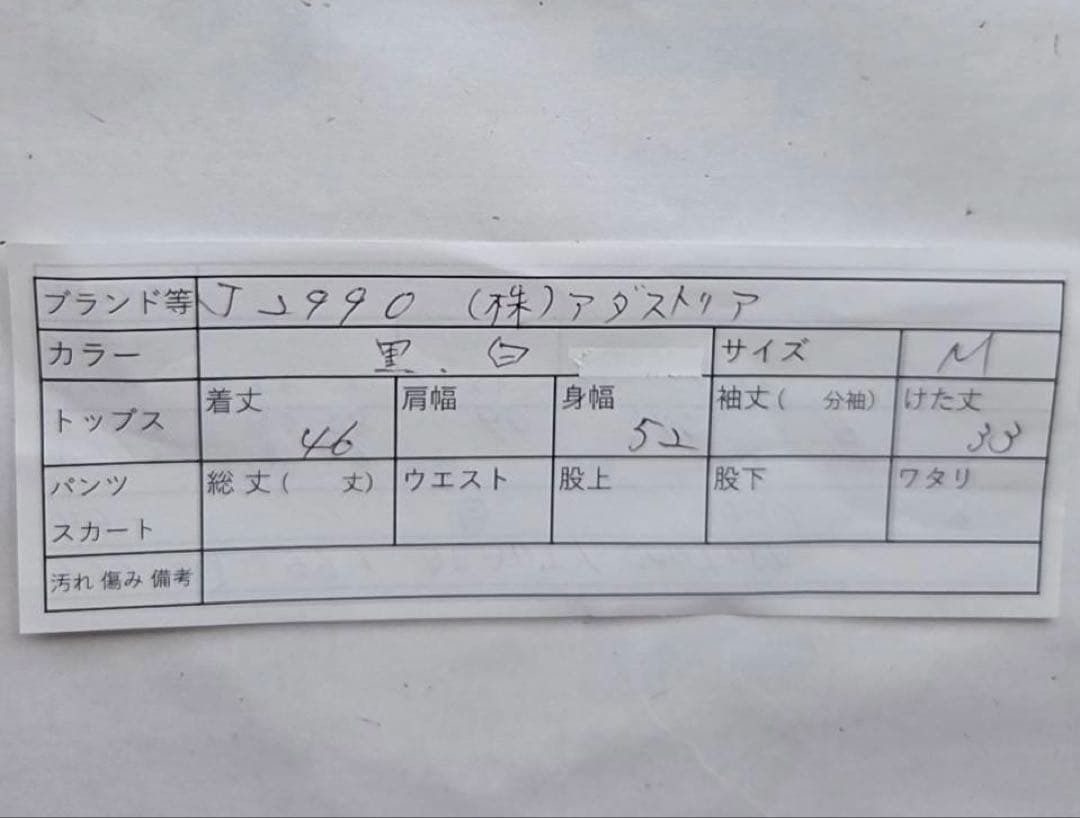 ブランド等 J2990 (株)アダストリア
カラー 黒、白 サイズ M
トップス 着丈 46 肩幅 身幅 52 袖丈( 分袖) けた丈 33
パンツ スカート 総丈( 丈) ウエスト 股上 股下 ワタリ
汚れ 傷み 備考